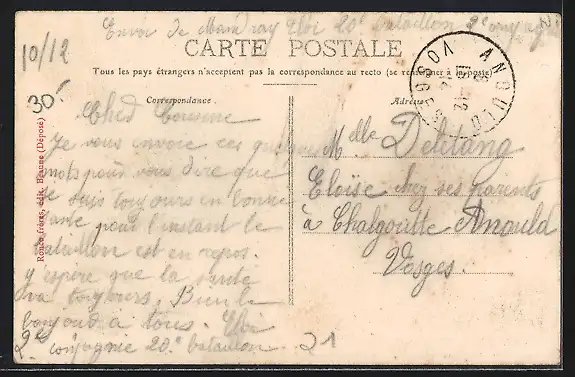 Envoi de Mandray Eloi 20e bataillon 2e compagnie
10/12
CARTE POSTALE
Tous les pays étrangers n'acceptent pas la correspondance au recto (se renseigner à la poste)
30f
Correspondance.
Adresse
ANOULD
VOSGES
Cher Cousine
Je vous envoie ces quelques
mots pour vous dire que
Je suis toujours en bonne
santé pour l'instant le
bataillon est en repos.
y espère que la santé
va toujours. Bien le
bonjour a tous. Eloi
2e compagnie 20e bataillon
21
Mlle Deletang
Eloïse chez ses parents
à Chalgoutte Anould
Vosges.
Ronco frères, édit. Beaune (Déposé)